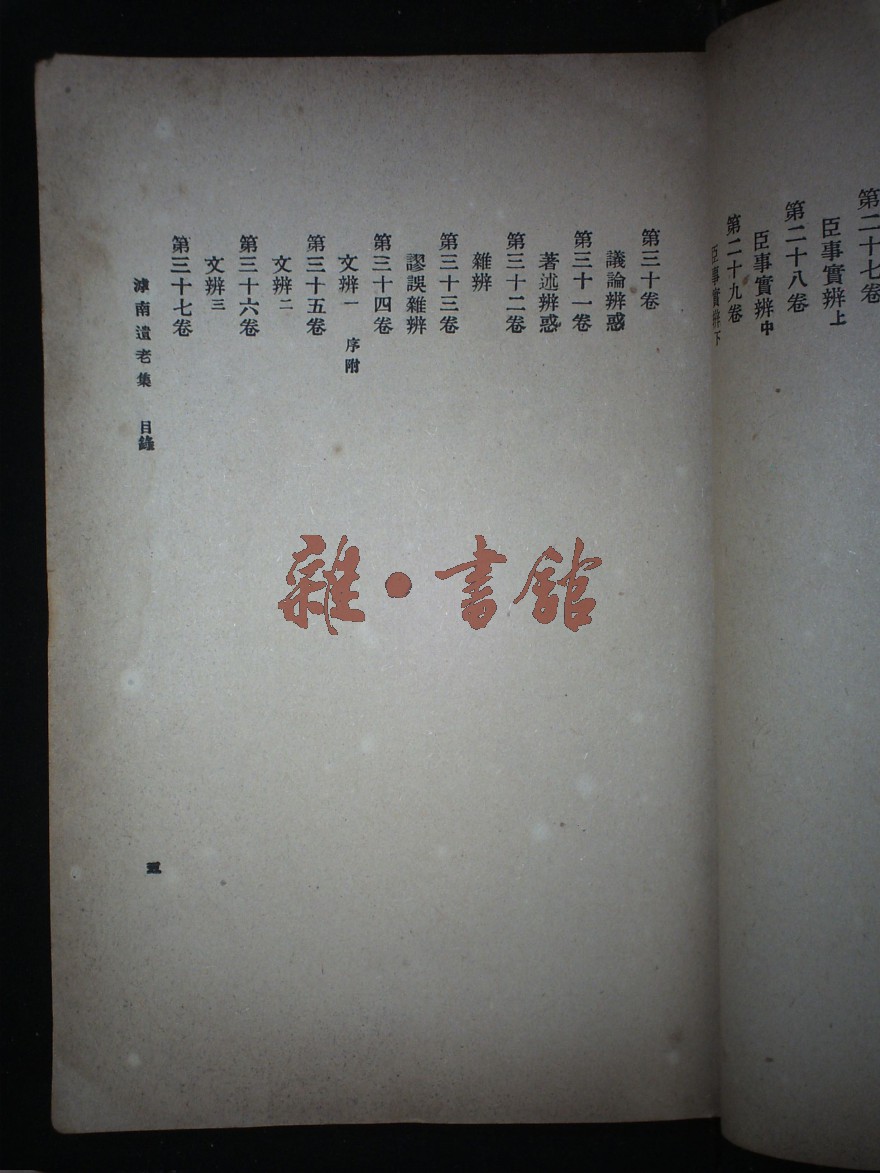 第二十七卷
臣事實辨上
第二十八卷
臣事實辨中
第二十九卷
臣事實辨下
第三十卷
議論辨惑
第三十一卷
著述辨惑
第三十二卷
雜辨
第三十三卷
謬誤雜辨
第三十四卷
文辨一 序附
第三十五卷
文辨二
第三十六卷
文辨三
第三十七卷
滹南遺老集 目錄
五
雜·書館